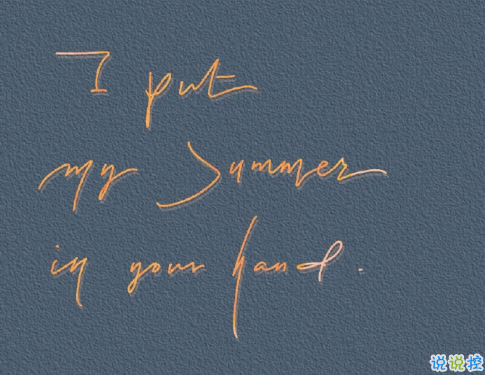 I put
my Summer
in your hand.
说说控